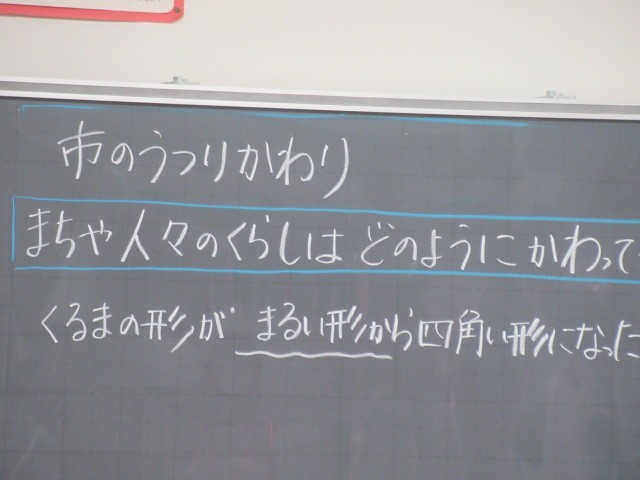 市のうつりかわり
まちや人々のくらしは どのようにかわって
くるまの形が まるい形から四角い形になった